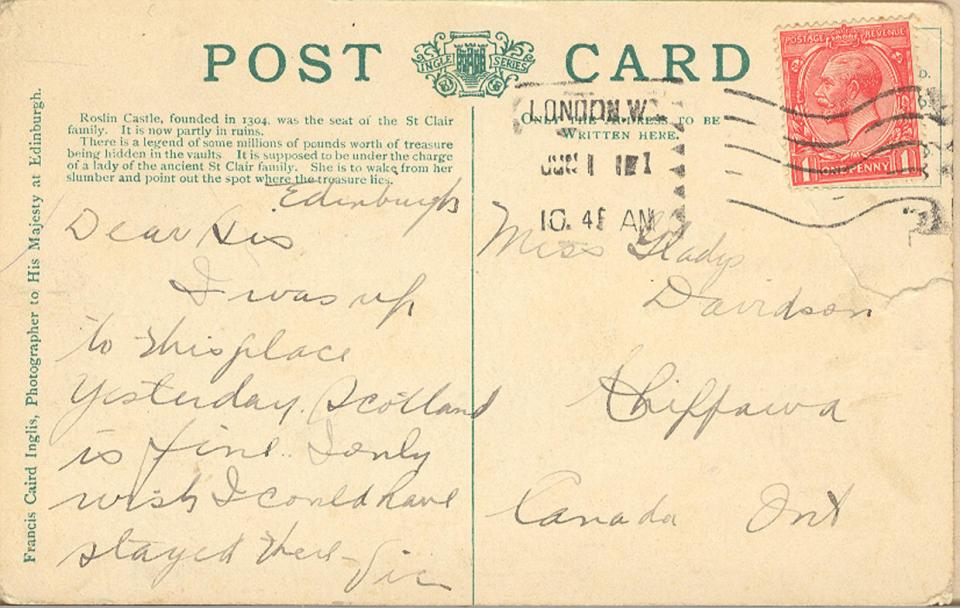 POST CARD
INGLE SERIES
Roslin Castle, founded in 1304, was the seat of the St Clair
family. It is now partly in ruins.
There is a legend of some millions of pounds worth of treasure
being hidden in the vaults It is supposed to be under the charge
of a lady of the ancient St Clair family. She is to wake from her
slumber and point out the spot where the treasure lies.
Francis Caird Inglis, Photographer to His Majesty at Edinburgh.
Edinburgh
Dear Sis
I was up
to this place
yesterday. Scotland
is fine. I only
wish I could have
stayed there - Vic
ONLY THE ADDRESS TO BE
WRITTEN HERE.
LONDON.W.
JUN 1
10. 45 AM
POSTAGE REVENUE
1 ONE PENNY 1
Miss Gladys
Davidson
Chippawa
Canada Ont